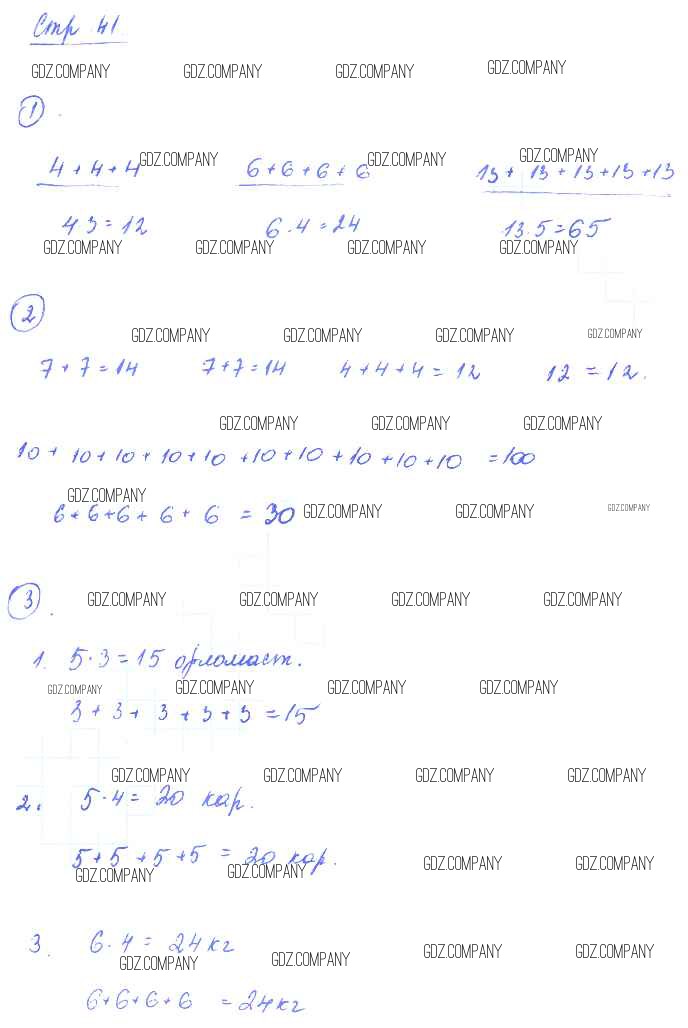 Стр 41
GDZ.COMPANY GDZ.COMPANY GDZ.COMPANY GDZ.COMPANY
1.
4+4+4 GDZ.COMPANY 6+6+6+6 GDZ.COMPANY 13+13+13+13+13 GDZ.COMPANY
4·3=12 6·4=24 13·5=65
GDZ.COMPANY GDZ.COMPANY GDZ.COMPANY GDZ.COMPANY
2
GDZ.COMPANY GDZ.COMPANY GDZ.COMPANY GDZ.COMPANY
7+7=14 7+7=14 4+4+4=12 12=12.
GDZ.COMPANY GDZ.COMPANY GDZ.COMPANY
10+10+10+10+10+10+10+10+10+10=100
GDZ.COMPANY
6+6+6+6+6=30 GDZ.COMPANY GDZ.COMPANY GDZ.COMPANY
3. GDZ.COMPANY GDZ.COMPANY GDZ.COMPANY GDZ.COMPANY
1. 5·3=15
GDZ.COMPANY GDZ.COMPANY GDZ.COMPANY GDZ.COMPANY
3+3+3+3+3=15
GDZ.COMPANY GDZ.COMPANY GDZ.COMPANY GDZ.COMPANY
2. 5·4=20 кар.
5+5+5+5=20 кар.
GDZ.COMPANY GDZ.COMPANY GDZ.COMPANY GDZ.COMPANY
3. 6·4=24 кг
GDZ.COMPANY GDZ.COMPANY GDZ.COMPANY GDZ.COMPANY
6+6+6+6=24 кг